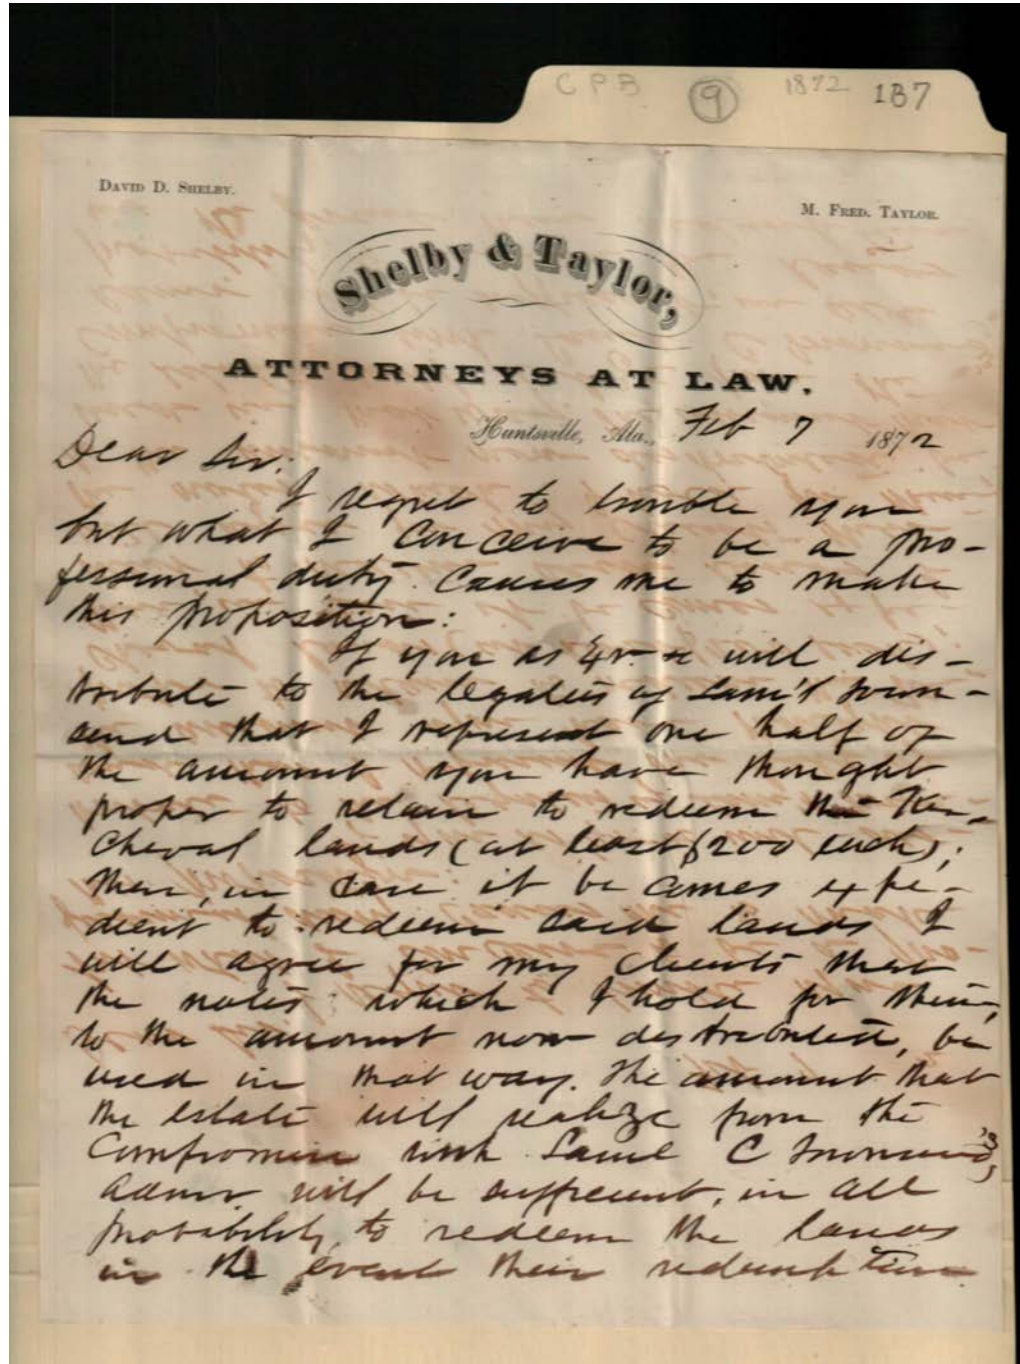 CPB 9 1872 187
DAVID D. SHELBY.
M. FRED. TAYLOR.
Shelby & Taylor,
ATTORNEYS AT LAW.
Huntsville, Ala., Feb 7 1872
Dear Sir:
I regret to trouble you
but what I conceive to be a pro-
fessional duty causes me to make
this proposition:
If you as Exr. &c will dis-
tribute to the legatees of Sam'l Town-
send that I represent one half of
the amount you have thought
proper to retain to redeem the Ken-
cheval lands (at least $200 each);
then, in case it becomes expe-
dient to redeem said lands I
will agree for my clients that
the notes which I hold for them,
to the amount now distributed, be
used in that way. The amount that
the estate will realize from the
compromise with Saml C Townsend's
admr will be sufficient, in all
probability, to redeem the lands
in the event their redemption